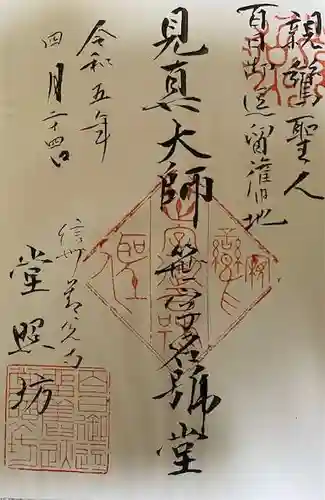 親鸞聖人
百日御逗留旧地
見真大師 笹字名号堂
令和五年
四月二十四日
信州善光寺
堂照坊